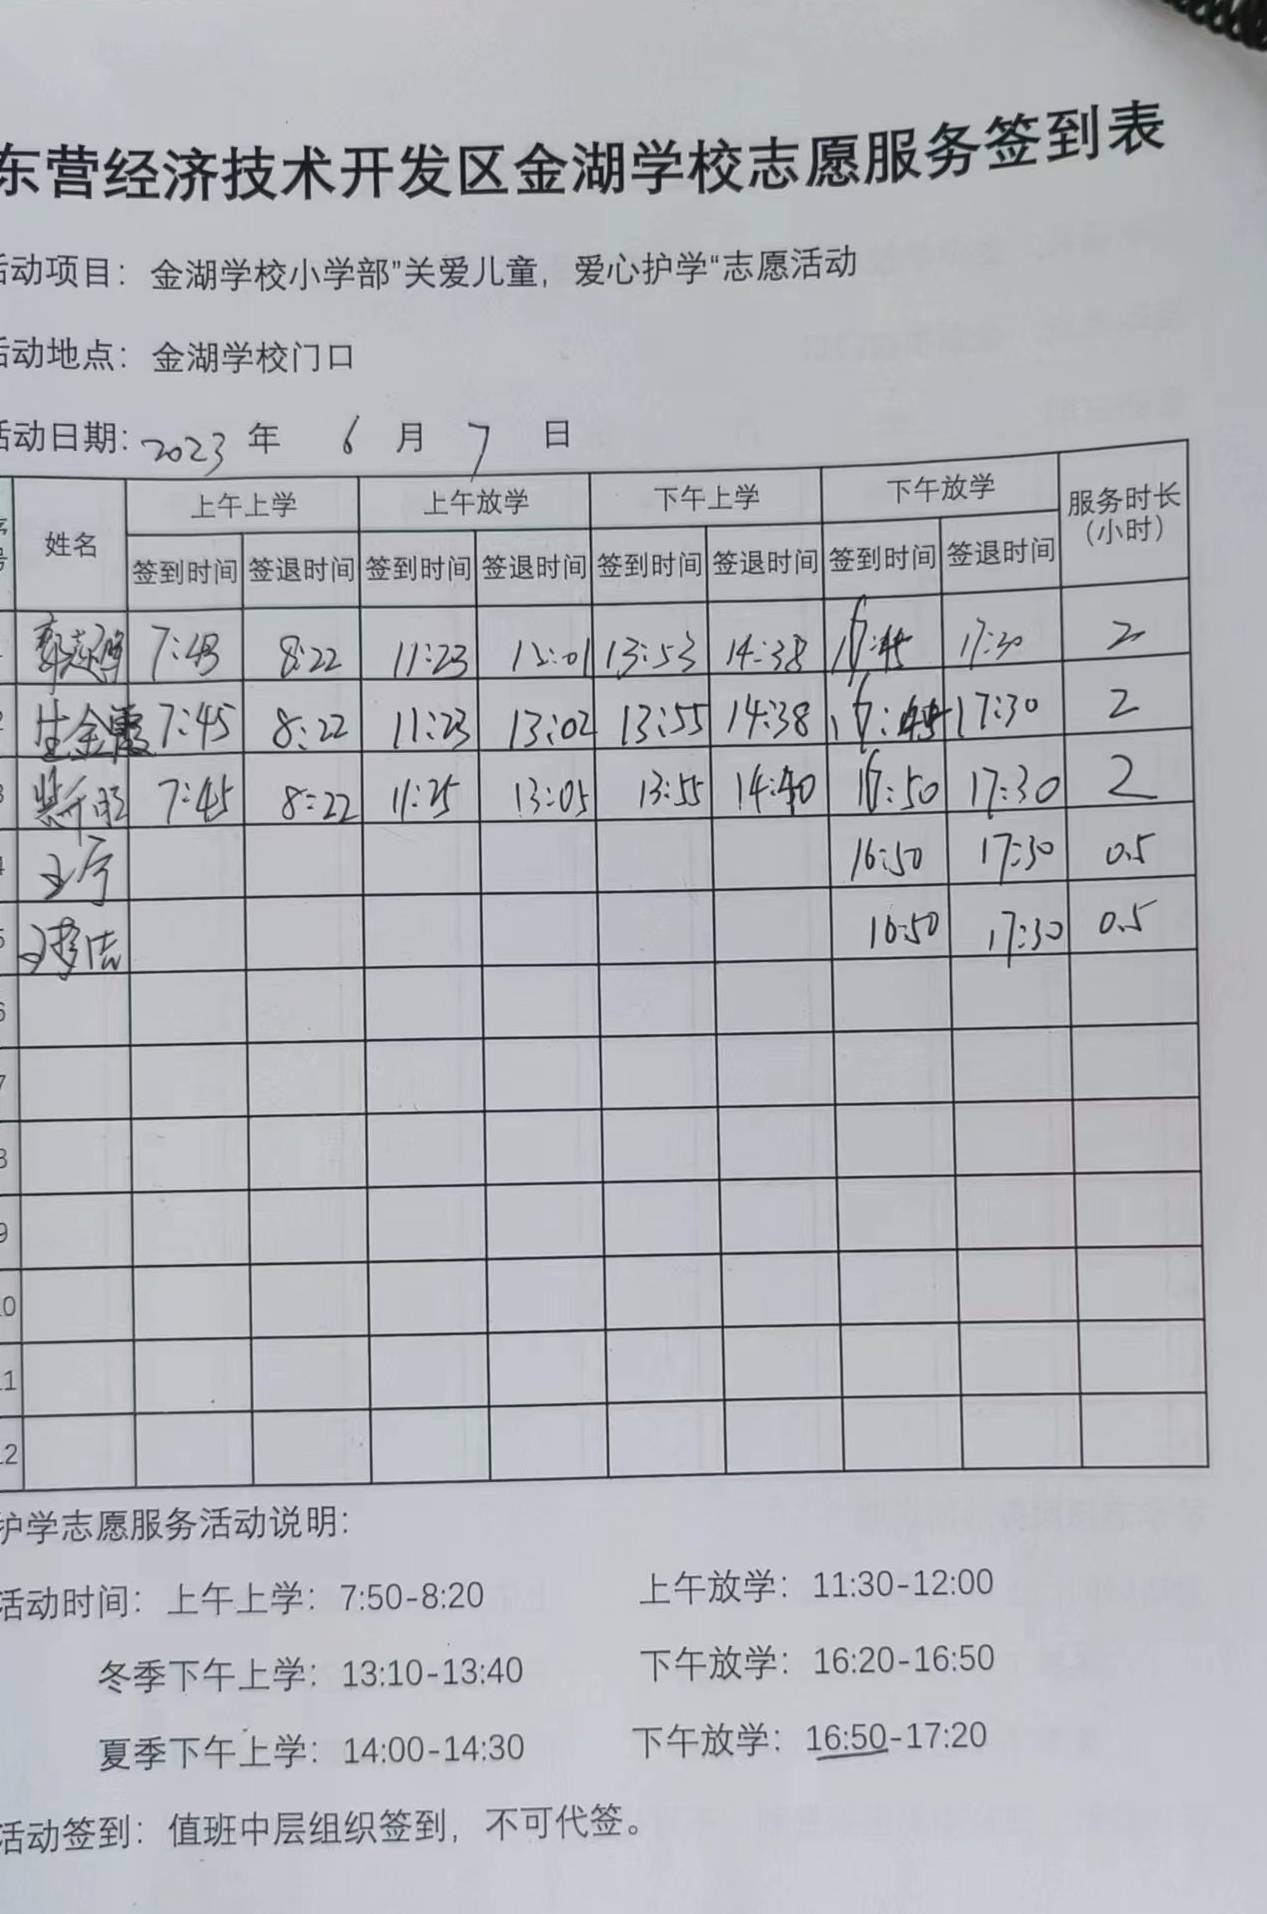 东营经济技术开发区金湖学校志愿服务签到表
活动项目：金湖学校小学部”关爱儿童，爱心护学“志愿活动
活动地点：金湖学校门口
活动日期:2023 年 6 月 7 日
序号 姓名 上午上学 上午放学 下午上学 下午放学 服务时长（小时）
签到时间 签退时间 签到时间 签退时间 签到时间 签退时间 签到时间 签退时间
7:43 8:22 11:23 12:01 13:53 14:38 16:45 17:30 2
2 生金霞 7:45 8:22 11:23 13:02 13:55 14:38 16:45 17:30 2
3 7:45 8:22 11:25 13:05 13:55 14:40 16:50 17:30 2
4 王宁 16:50 17:30 0.5
5 16:50 17:30 0.5
6
7
8
9
10
11
12
护学志愿服务活动说明：
活动时间：上午上学：7:50-8:20 上午放学：11:30-12:00
冬季下午上学：13:10-13:40 下午放学：16:20-16:50
夏季下午上学：14:00-14:30 下午放学：16:50-17:20
活动签到：值班中层组织签到，不可代签。